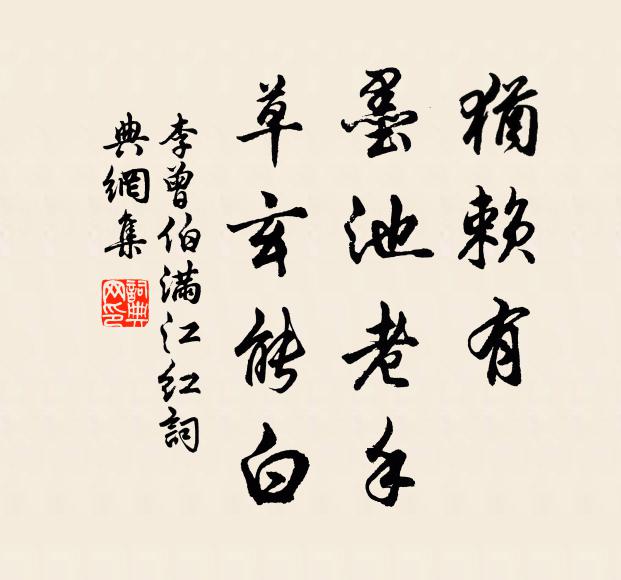 猶賴有
墨池老手
草玄能白
李曾伯满江红詞
典網集
詞典
网印